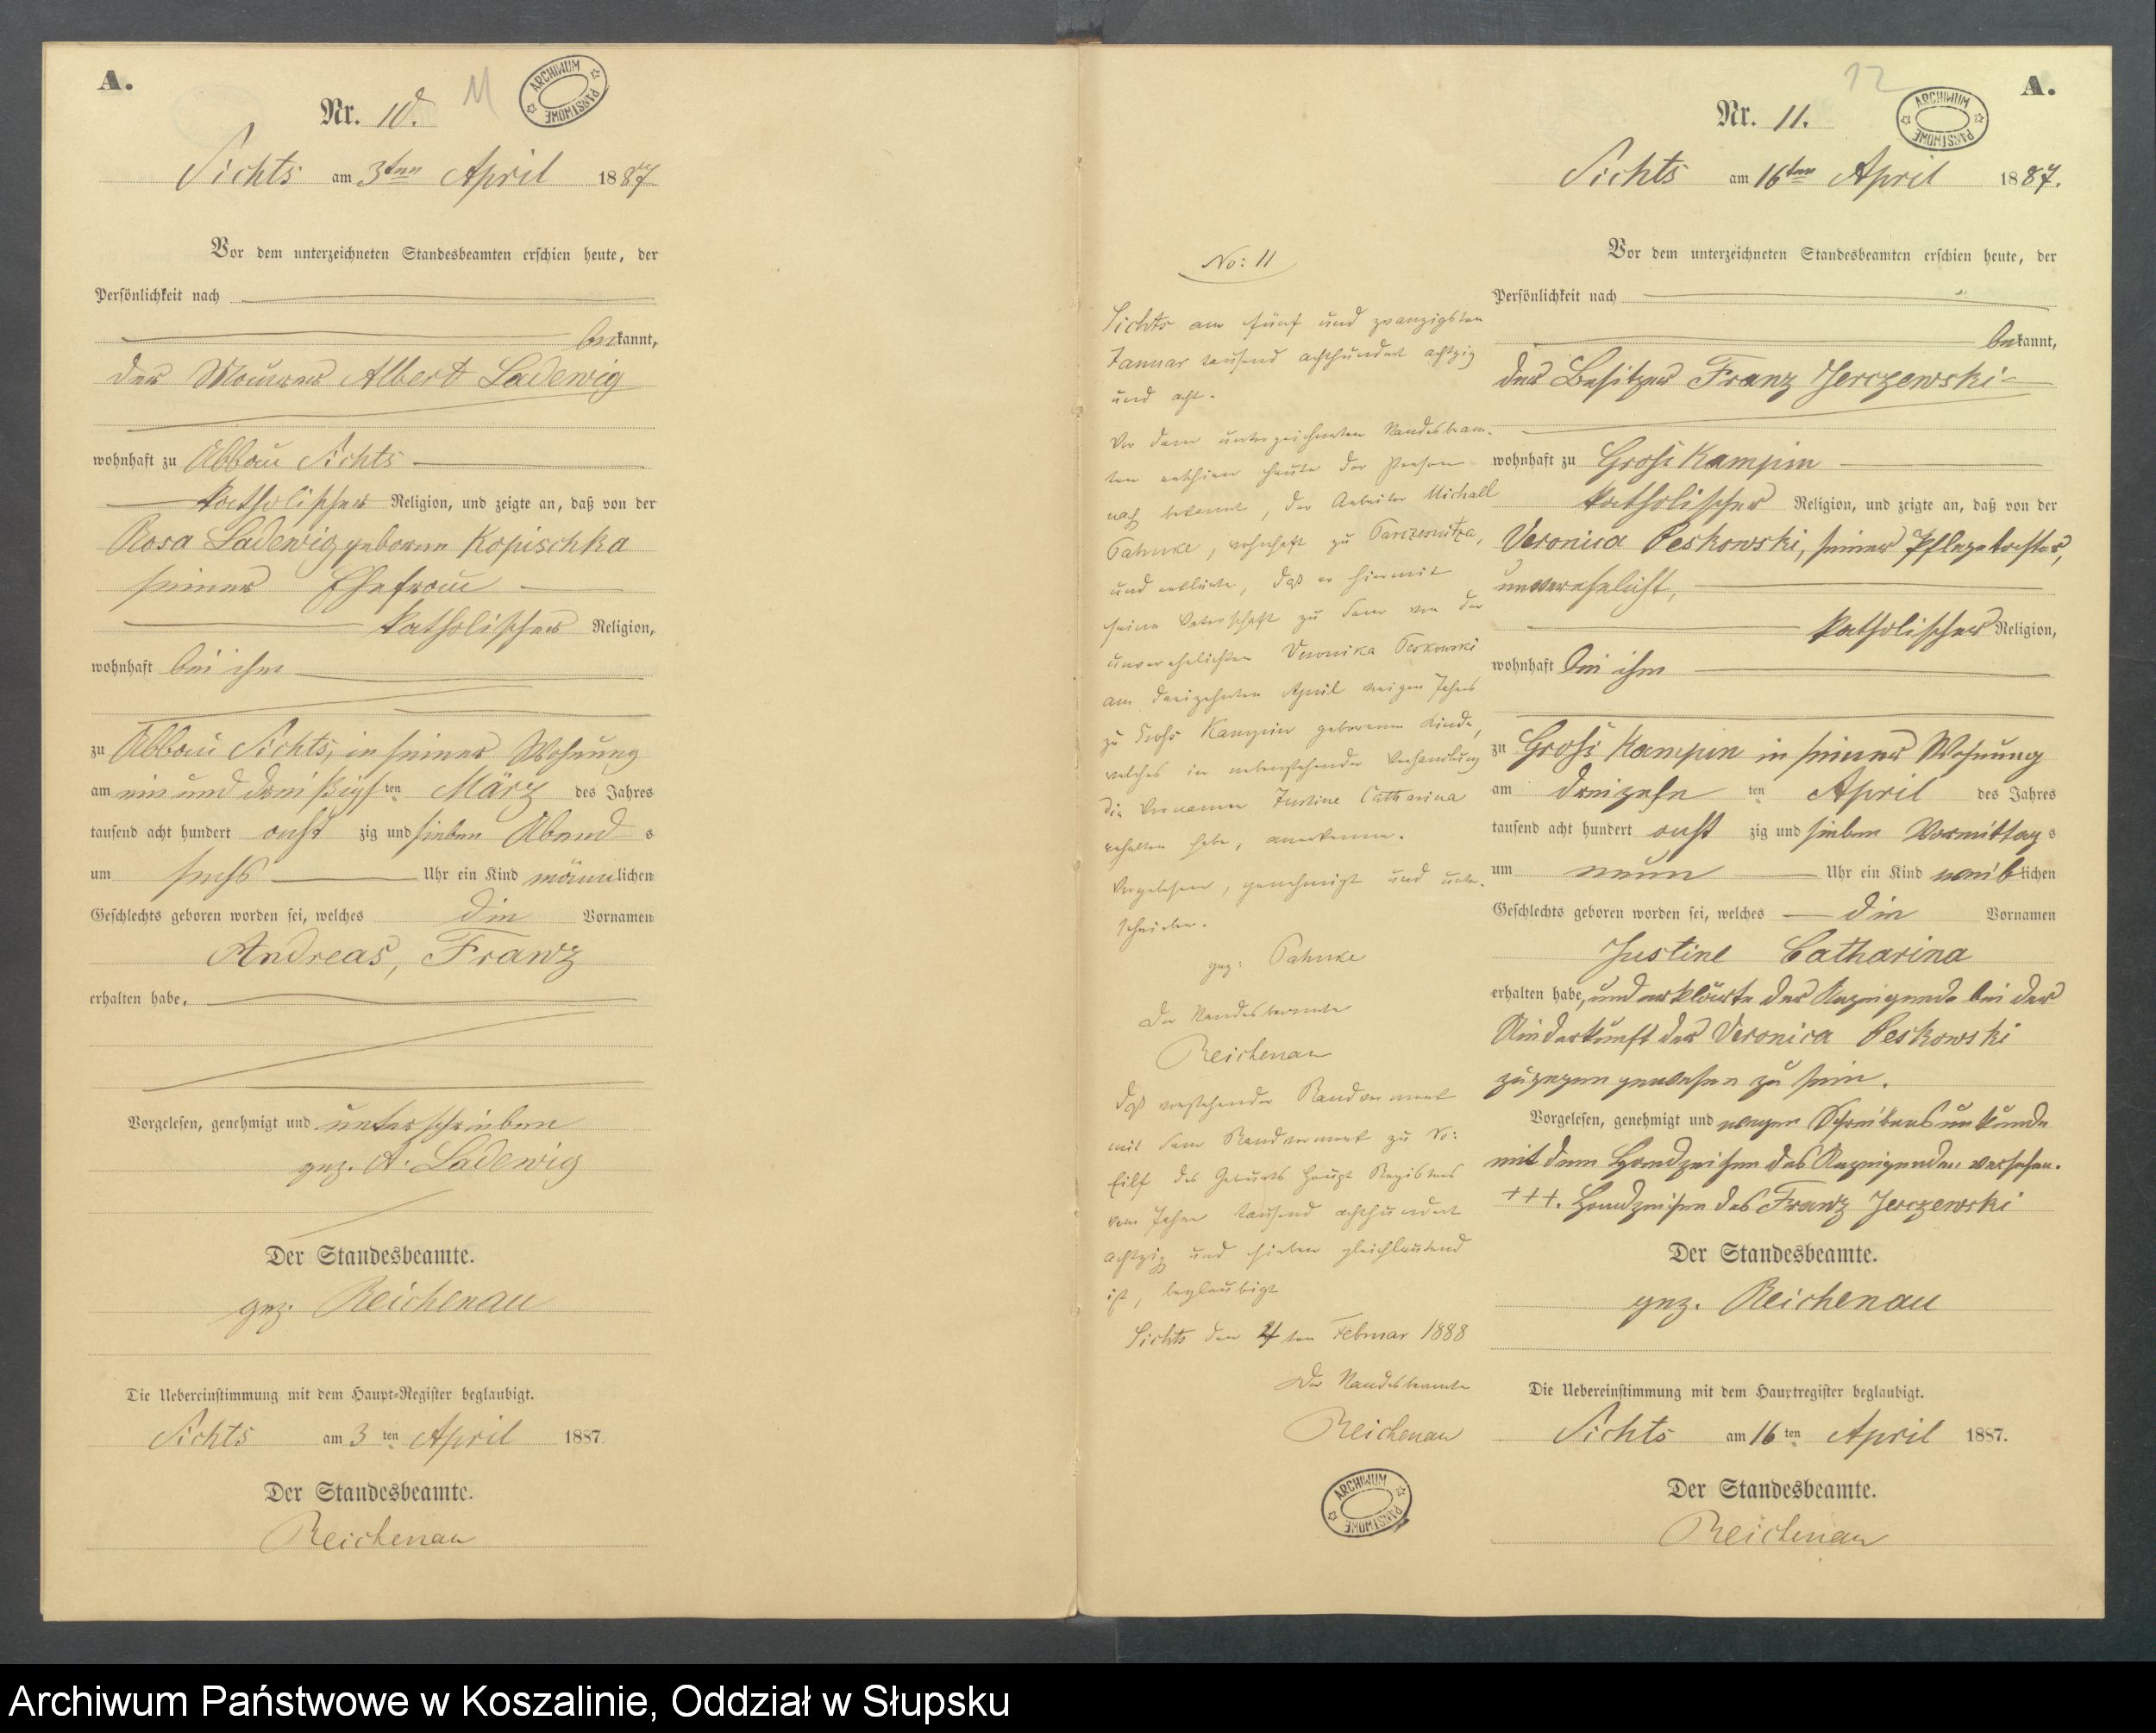 A.
Nr. 10.
11
ARCHIWUM PAŃSTWOWE
Sichts am 3ten April 1887
Vor dem unterzeichneten Standesbeamten erschien heute, der
Persönlichkeit nach
bekannt,
der Maurer Albert Ladewig
wohnhaft zu Abbau Sichts
katholischer Religion, und zeigte an, daß von der
Rosa Ladewig geborene Kopischka
seiner Ehefrau
katholischer Religion,
wohnhaft bei ihm
zu Abbau Sichts, in seiner Wohnung
am ein und dreißigsten März des Jahres
tausend acht hundert achtzig und sieben Abends
um sechs Uhr ein Kind männlichen
Geschlechts geboren worden sei, welches die Vornamen
Andreas, Franz
erhalten habe.
Vorgelesen, genehmigt und unterschrieben
gez. A. Ladewig
Der Standesbeamte.
gez. Reichenau
Die Uebereinstimmung mit dem Haupt-Register beglaubigt.
Sichts am 3ten April 1887.
Der Standesbeamte.
Reichenau
No: 11
Sichts am fünf und zwanzigsten
Januar tausend achthundert achtzig
und acht.
Vor dem unterzeichneten Standesbeam-
ten erschien heute der Person
nach bekannt, der Arbeiter Michall
Pahnke, wohnhaft zu
und erklärte, daß er hiermit
seine Vaterschaft zu dem von der
unverehelichten Veronika Peskowski
am dreizehnten April vorigen Jahres
zu Groß Kampin geborenen Kinde,
welches in nebenstehender Verhandlung
die Vornamen Justine Catharina
erhalten habe, anerkenne.
Vorgelesen, genehmigt und unter-
schrieben.
gez: Pahnke
Der Standesbeamte
Reichenau
Daß vorstehender Randvermerk
mit dem Randvermerk zu No:
Eilf des Geburts Haupt Registers
vom Jahre tausend achthundert
achtzig und sieben gleichlautend
ist, beglaubigt
Sichts den 4ten Februar 1888
Der Standesbeamte
Reichenau
ARCHIWUM PAŃSTWOWE
12
A.
Nr. 11.
ARCHIWUM PAŃSTWOWE
Sichts am 16ten April 1887.
Vor dem unterzeichneten Standesbeamten erschien heute, der
Persönlichkeit nach
bekannt,
der Besitzer Franz Jerczewski
wohnhaft zu Groß Kampin
katholischer Religion, und zeigte an, daß von der
Veronica Peskowski, seiner Pflegetochter,
unverehelicht,
katholischer Religion,
wohnhaft bei ihm
zu Groß Kampin in seiner Wohnung
am dreizehnten April des Jahres
tausend acht hundert achtzig und sieben Vormittags
um neun Uhr ein Kind weiblichen
Geschlechts geboren worden sei, welches die Vornamen
Justine Catharina
erhalten habe, und erklärte der Anzeigende bei der
Niederkunft der Veronica Peskowski
zugegen gewesen zu sein.
Vorgelesen, genehmigt und wegen Schreibensunkunde
mit dem Handzeichen des Anzeigenden versehen.
+++. Handzeichen des Franz Jerczewski
Der Standesbeamte.
gez. Reichenau
Die Uebereinstimmung mit dem Hauptregister beglaubigt.
Sichts am 16ten April 1887.
Der Standesbeamte.
Reichenau
Archiwum Państwowe w Koszalinie, Oddział w Słupsku